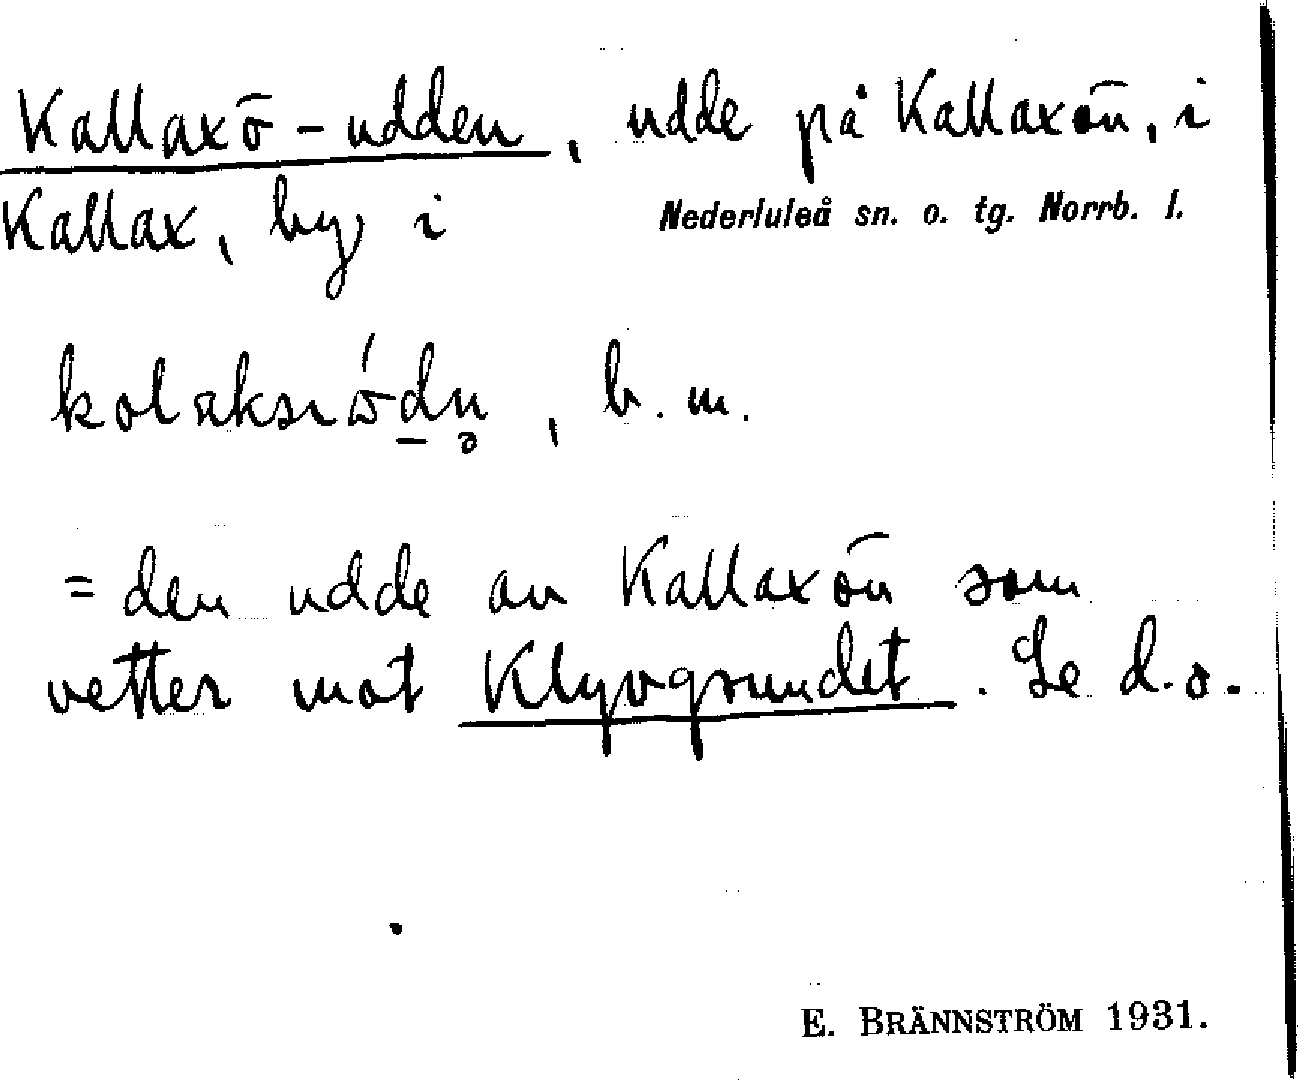 Kallaxö-udden, udde på Kallaxön, i
Kallax, by i Nederluleå sn. o. tg. Norrb. l.
b. m.
= den udde av Kallaxön som
vetter mot Klyvgrundet. Se d.o.
E. BRÄNNSTRÖM 1931.